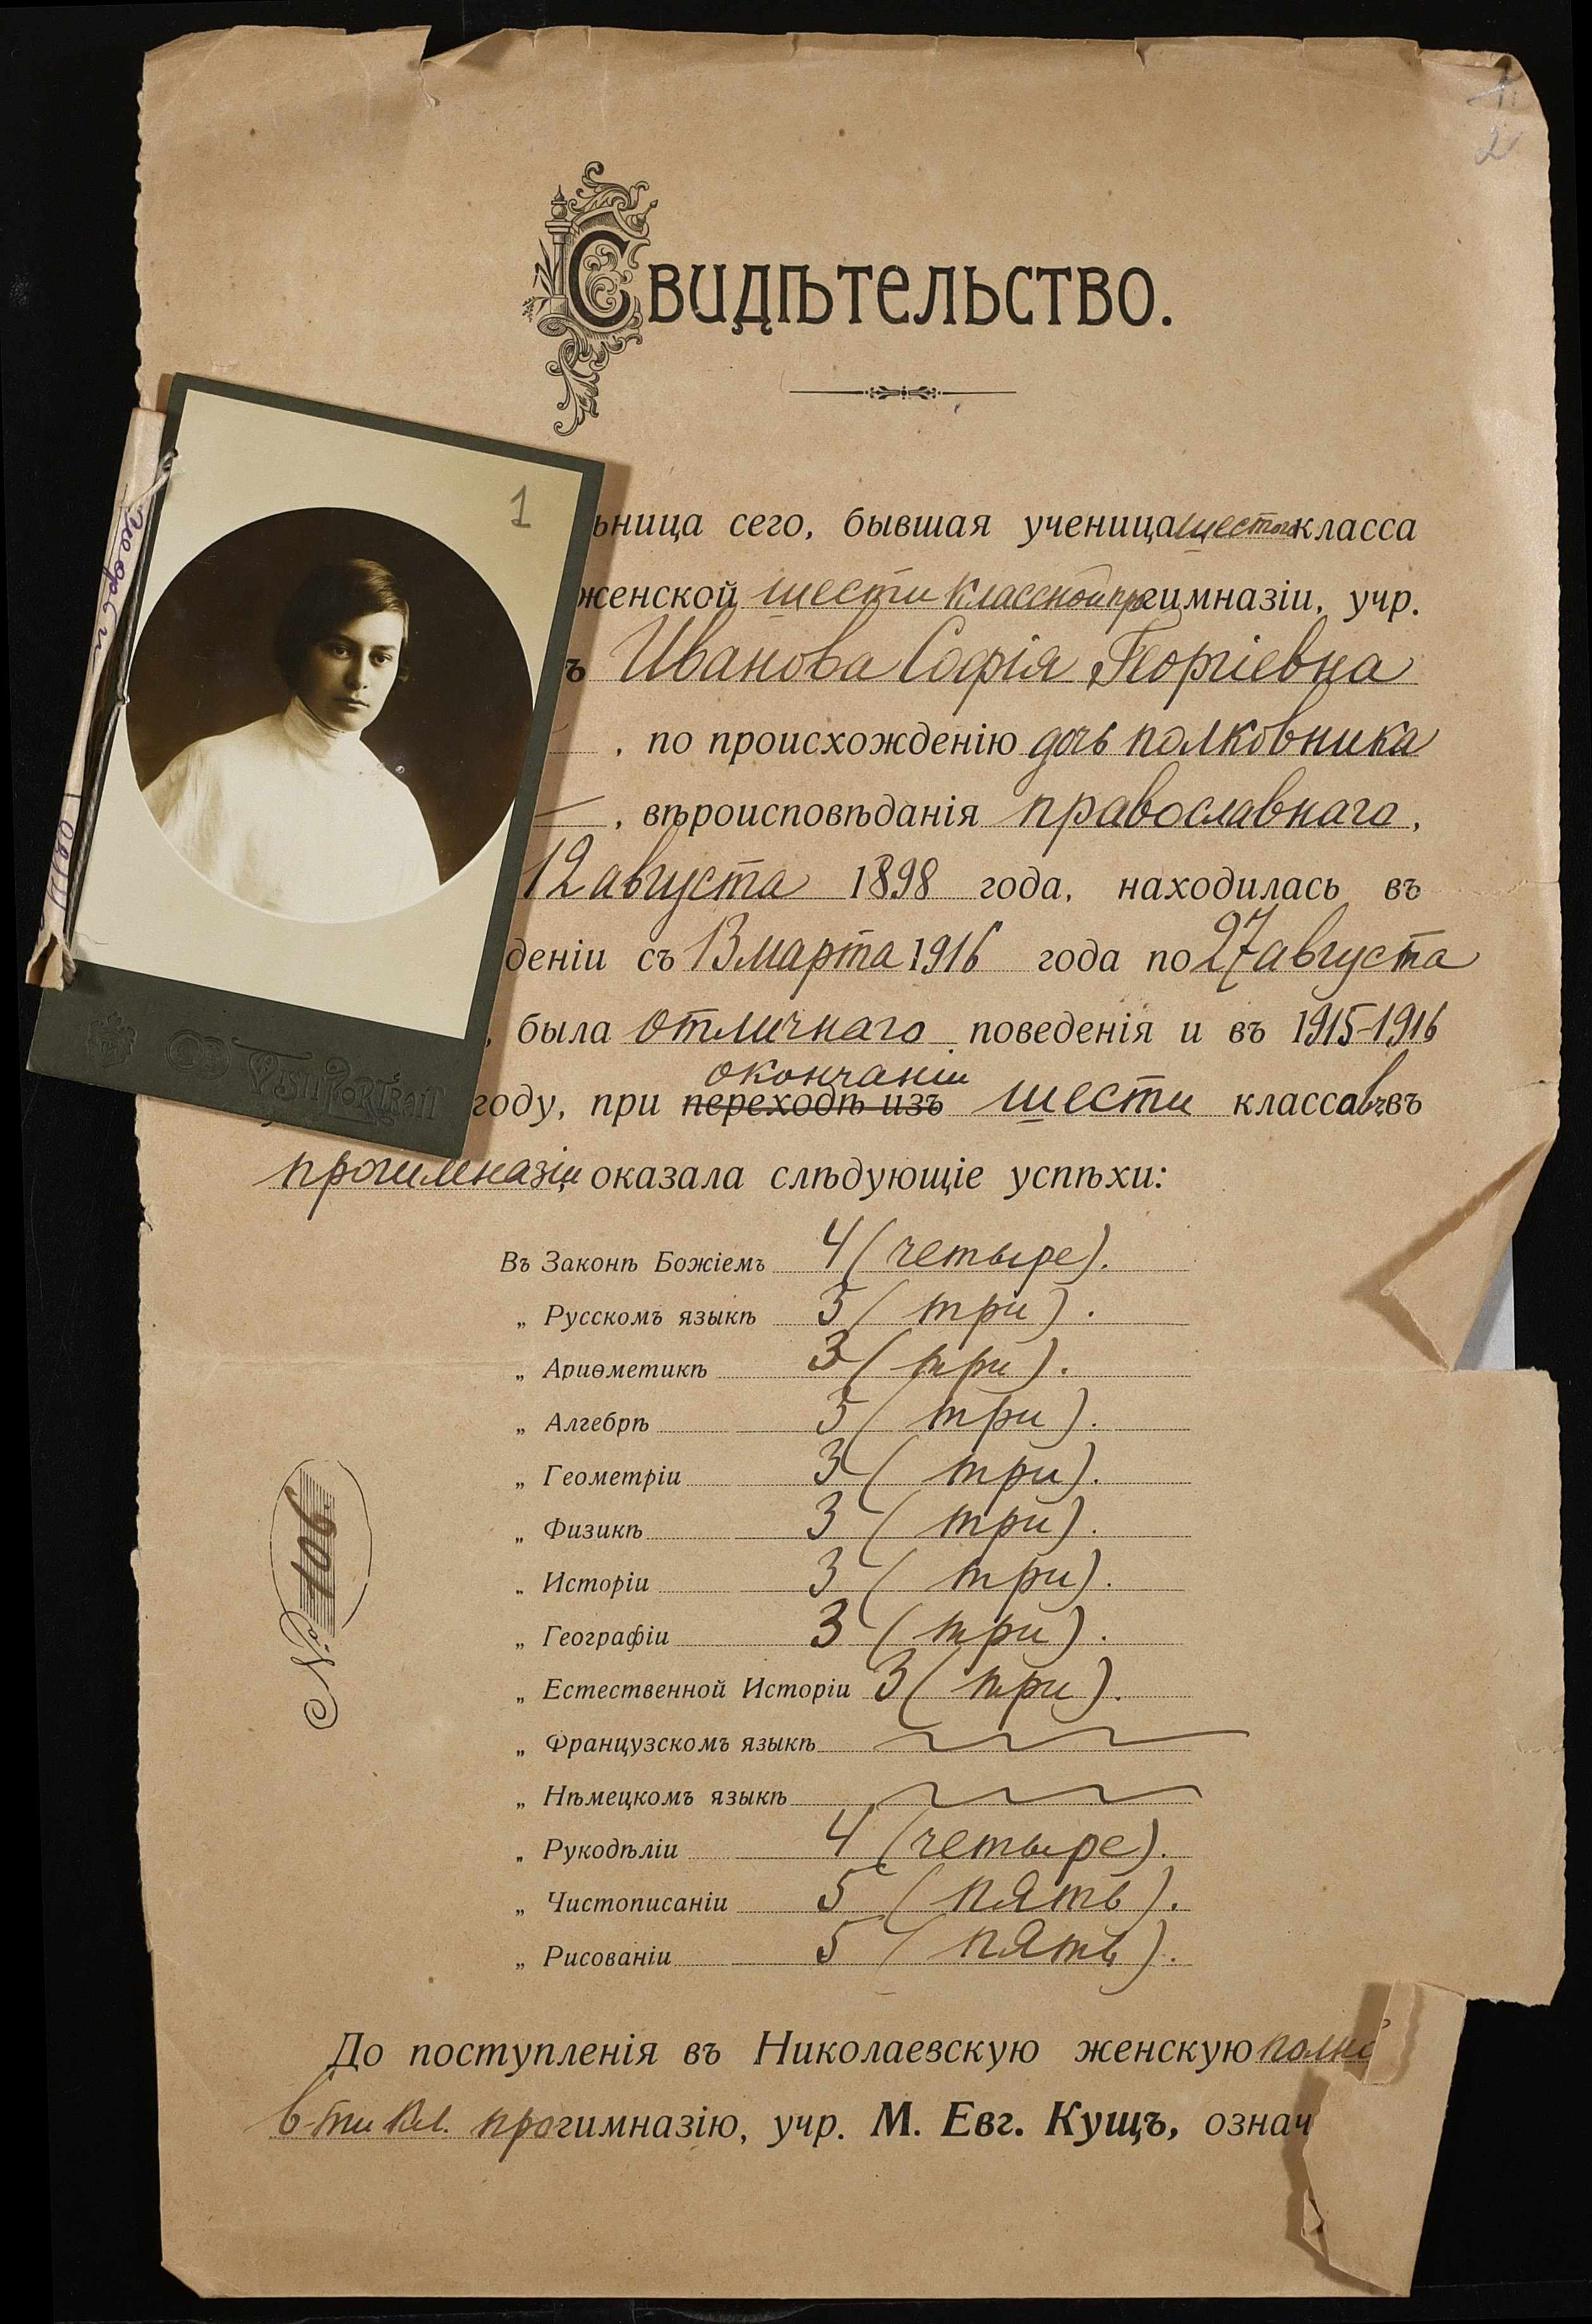 1
2
Свидѣтельство.
1
ьница сего, бывшая ученица шестого класса
женской шести классной прогимназіи, учр.
ъ Иванова Софія Георгіевна
, по происхожденію дочь полковника
, вѣроисповѣданія православнаго,
12 августа 1898 года, находилась въ
деніи съ 13 марта 1916 года по 27 августа
, была отличнаго поведенія и въ 1915-1916
окончаніи
году, при переходѣ изъ шести классовъ въ
прогимназіи оказала слѣдующіе успѣхи:
VISIT PORTRAIT
Въ Законѣ Божіемъ 4 (четыре).
„ Русскомъ языкѣ 3 (три).
„ Ариѳметикѣ 3 (три).
„ Алгебрѣ 3 (три).
„ Геометріи 3 (три).
„ Физикѣ 3 (три).
„ Исторіи 3 (три).
„ Географіи 3 (три).
„ Естественной Исторіи 3 (три).
„ Французскомъ языкѣ
„ Нѣмецкомъ языкѣ
„ Рукодѣліи 4 (четыре).
„ Чистописаніи 5 (пять).
„ Рисованіи 5 (пять).
№ 106.
До поступленія въ Николаевскую женскую
6-ти кл. прогимназію, учр. М. Евг. Кущъ, означ